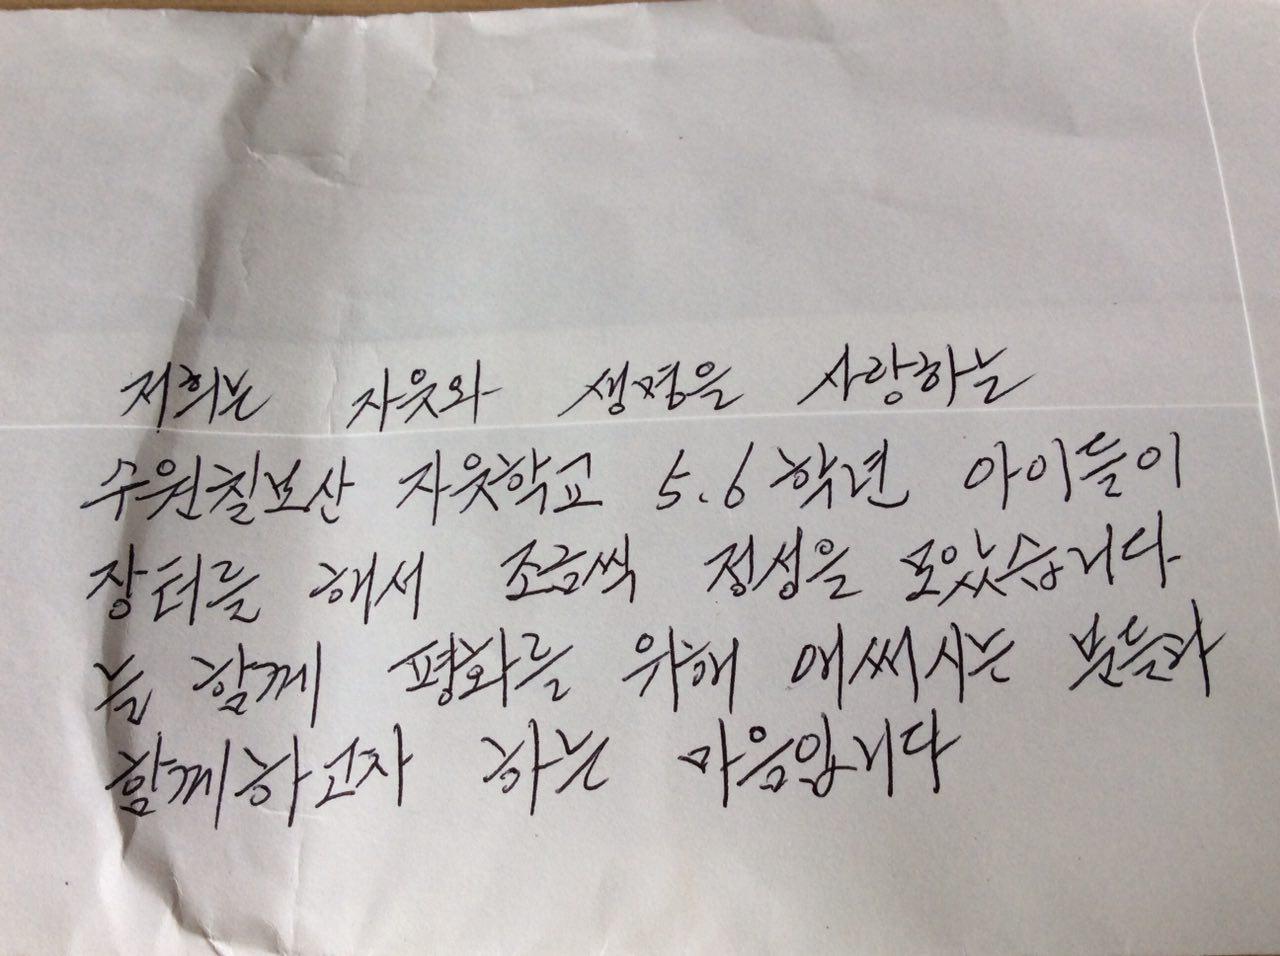 저희는 자유와 생명을 사랑하는
수원칠보산 자유학교 5.6학년 아이들이
장터를 해서 조금씩 정성을 모았습니다
늘 함께 평화를 위해 애써시는 분들과
함께하고자 하는 마음입니다